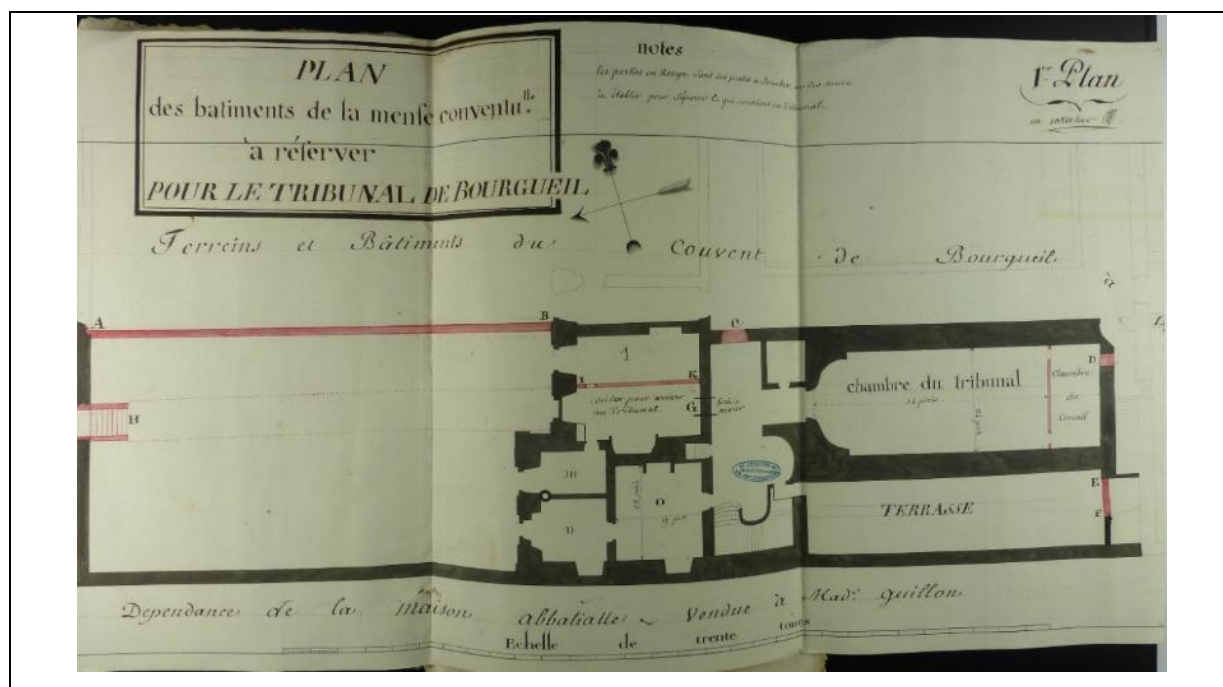 PLAN
des batiments de la mense conventu.lle
à réserver
POUR LE TRIBUNAL DE BOURGUEIL
notes
les parties en Rouge sont des portes à boucher ou des murs
à établir pour séparer ce qui convient au Tribunal.
1er Plan
Terreins et Bâtiments du Couvent de Bourgueil
à
A
B
C
D
H
1
I
K
coridor pour arriver
au Tribunal
G
chambre du tribunal
Chambre
du
Conseil
O
E
F
TERRASSE
Dependance de la maison abbatialle Vendue à Mad.e guillon
Echelle de trente toises